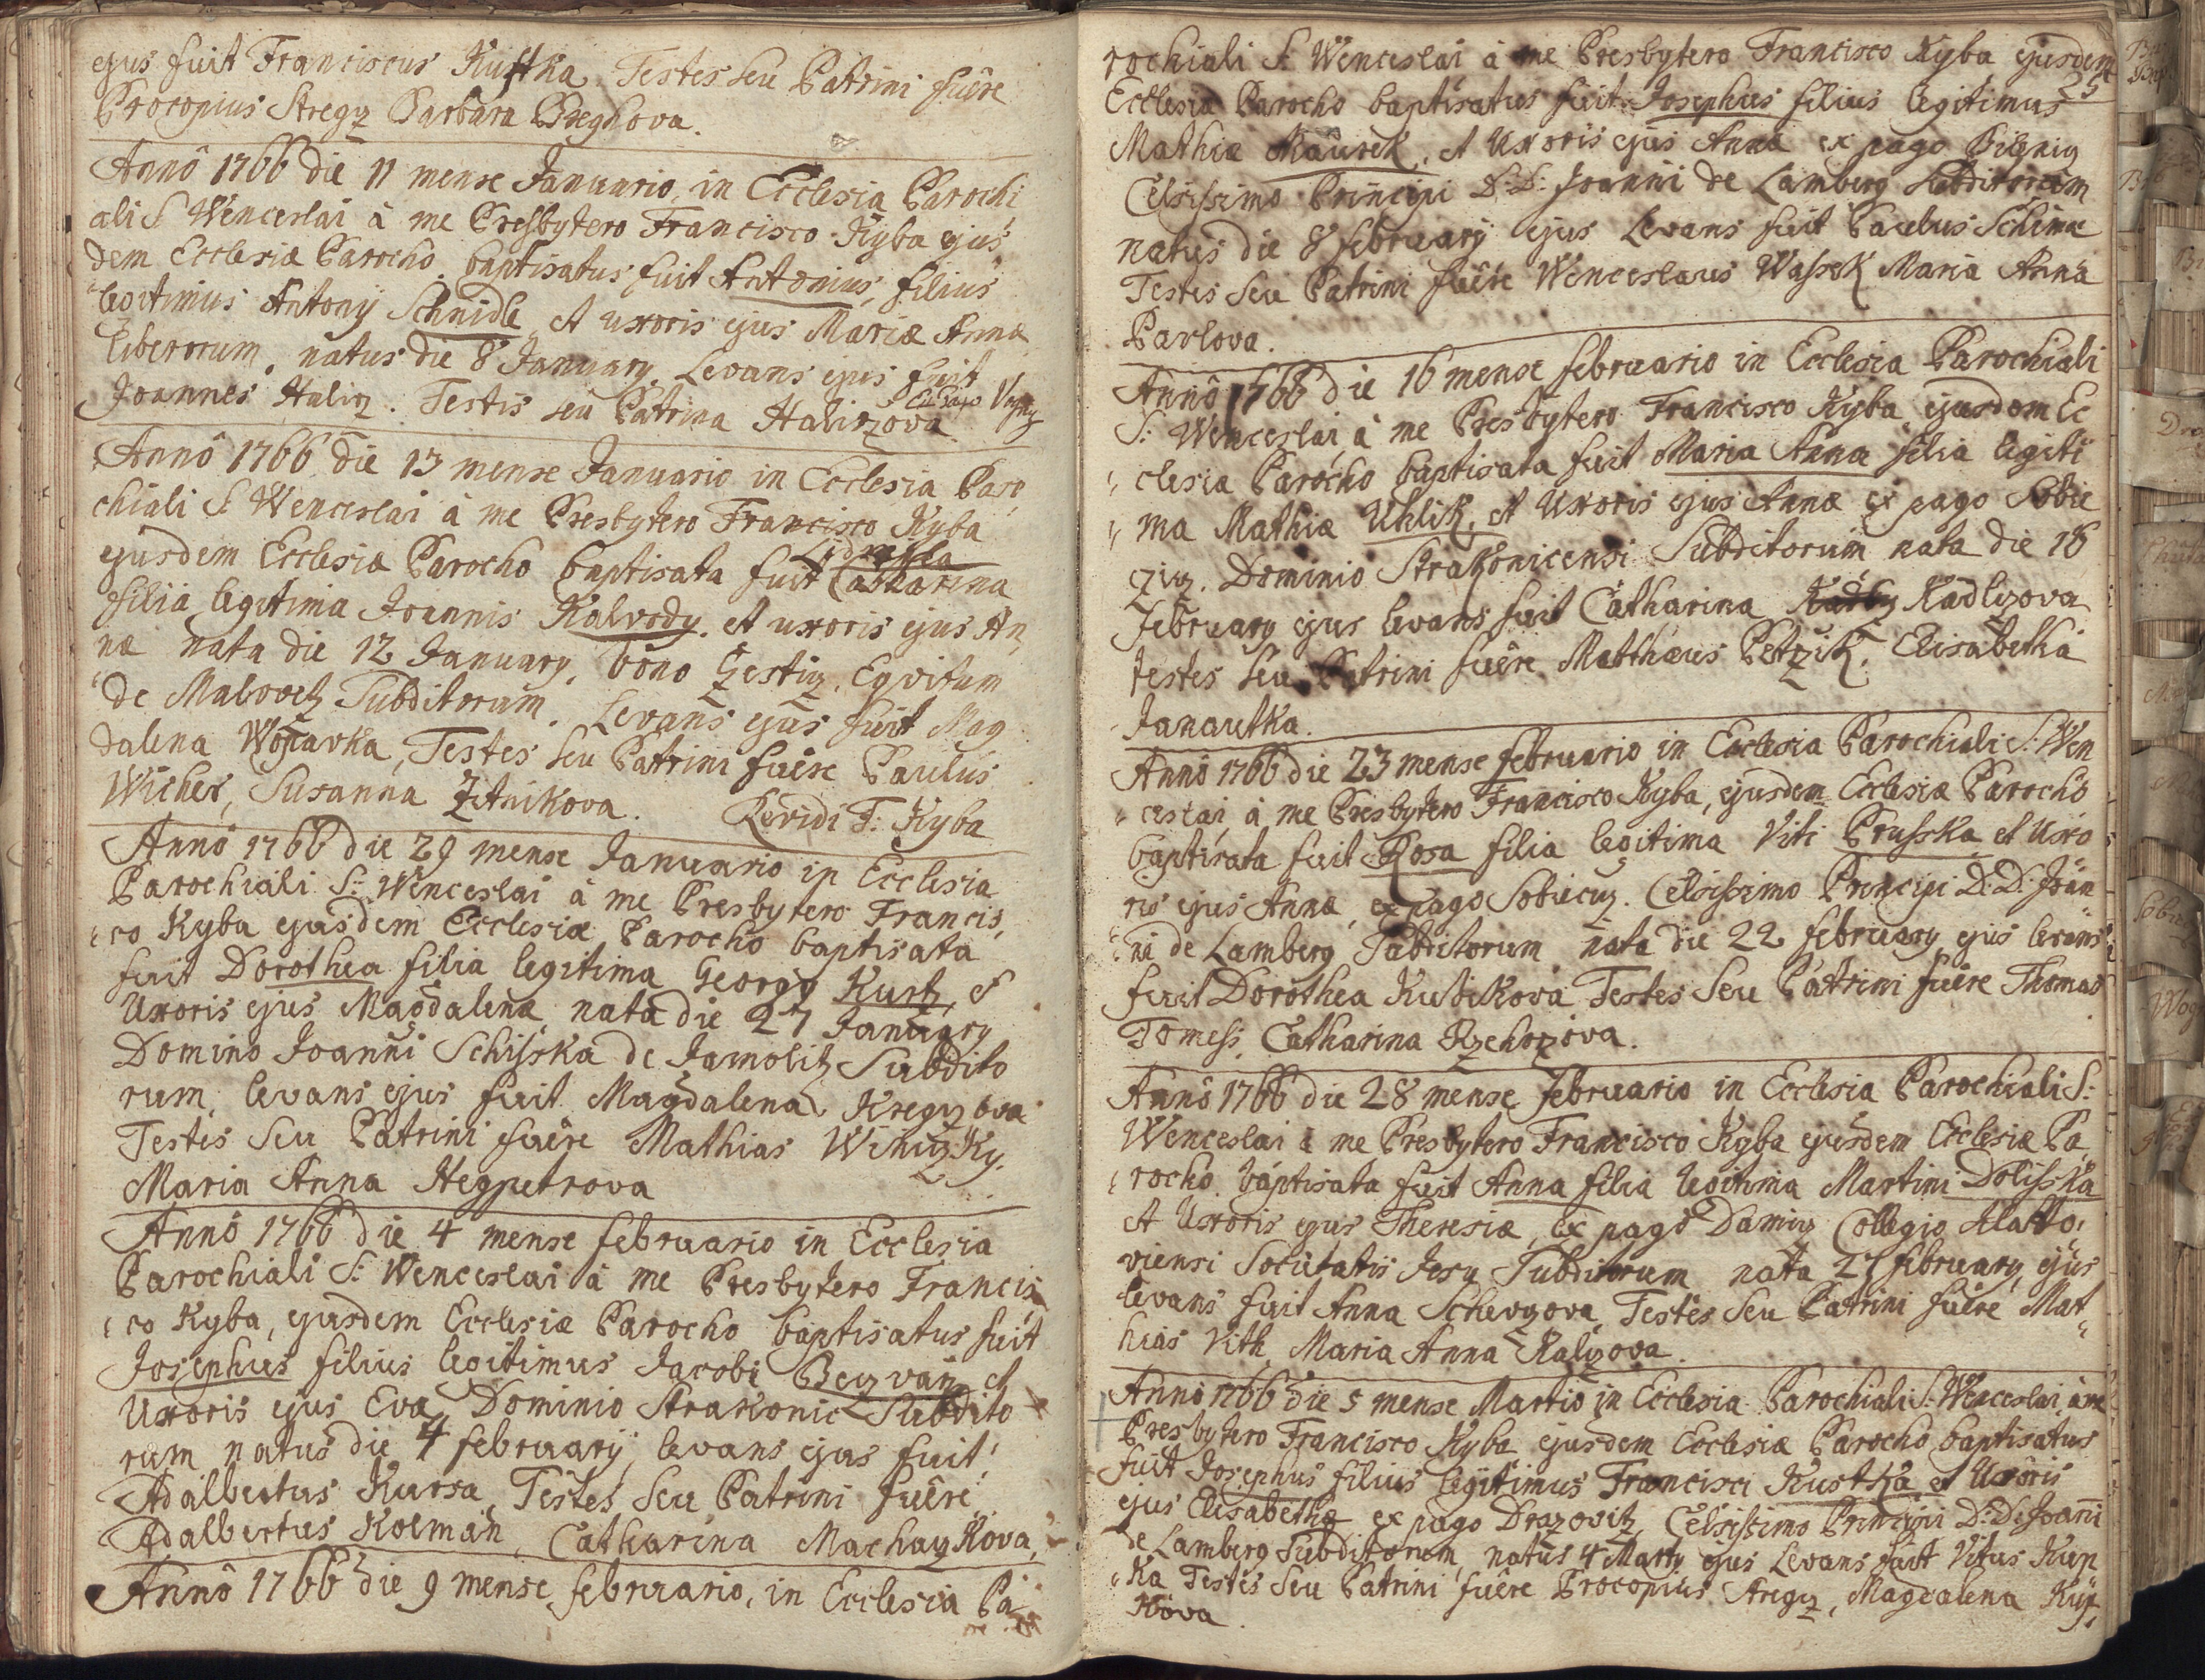 ejus fuit Franciscus Kustka Testes seu Patrini fuêre
Procopius Stregz Barbara
Annô 1766 die 11 mense Januario, in Ecclesia Parochi
ali S. Wenceslai à me Presbytero Francisco Kyba ejus,
dem Ecclesiæ Parocho baptisatus fuit Antonius, filius
legitimus Antonij Schnidle et uxoris ejus Mariæ Annæ
liberorum. natus die 8 January Levans ejus fuit
Joannes Halirz. Testis seu Patrina Halirzova
Annô 1766 die 13 mense Januario in Ecclesia Paro,
chiali S. Wenceslai à me Presbytero Francisco Kyba
ejusdem Ecclesiæ Parocho baptisata fuit Catharina
filia legitima Joannis Kalvody et uxoris ejus An,
næ nata die 12 January, bono Equitum
de Malovetz Subditorum. Levans ejus fuit Mag
dalena Testes seu Patrini fuêre Paulus
Wicher, Susanna Zitnikova. Revidi F: Kyba
Annô 1766 die 29 mense Januario in Ecclesia
Parochiali S: Wenceslai à me Presbytero Francis,
co Kyba ejusdem Ecclesiæ Parocho baptisata
fuit Dorothea filia legitima Georgy Kurtz, et
Uxoris ejus Magdalenæ nata die 27 January
Domino Joanni Schisska de Jamolitz Subdito
rum, levans ejus fuit Magdalena Kregzova
Testes seu Patrini fuêre Mathias
Maria Anna Hegpetrova
Annô 1766 die 4 mense februario in Ecclesia
Parochiali S: Wenceslai à me Presbytero Francis,
co Kyba, ejusdem Ecclesiæ Parocho baptisatus fuit
Josephus filius legitimus Jacobi et
Uxoris ejus Evæ Dominio Strakonic Subdito
rum natus die 4 february levans ejus fuit
Adalbertus Kursa, Testes seu Patrini fuêre
Adalbertus Kolman, Catharina Machaczkova,
Annô 1766 die 9 mense februario, in Ecclesia Pa
25
rochiali S: Wenceslai à me Presbytero Francisco Kyba ejusdem
Ecclesiæ Parocho baptisatus fuit Josephus filius legitimus
Mathiæ Maurek, et Uxoris ejus Annæ ex pago
Celsissimo Principi D: D: Joanni de Lamberg Subditorum
natus die 8 february ejus Levans fuit Paulus Schima
Testes seu Patrini fuêre Wenceslaus Wassek Maria Anna
Pavlova.
Annô 1766 die 16 mense februario in Ecclesia Parochiali
S: Wenceslai à me Presbytero Francisco Kyba ejusdem Ec
clesiæ Parocho baptisata fuit Maria Anna filia legiti
ma Mathiæ Uhlik, et Uxoris ejus Annæ ex pago Sobie
Dominio Strakonicensi Subditorum nata die 16
February ejus levans fuit Catharina Kadlzova
testes seu Patrini fuêre Matthæus Petrzik, Elisabetha
Janautka.
Annô 1766 die 23 mense februario in Ecclesia Parochiali S: Wen
ceslai à me Presbytero Francisco Kyba, ejusdem Ecclesiæ Parocho
baptisata fuit Rosa filia legitima Viti Prusska et Uxo
ris ejus Annæ, ex pago Celsissimo Principi D: D: Joan
ni de Lamberg Subditorum nata die 22 february ejus levans
fuit Dorothea Kubikova Testes seu Patrini fuêre Thomas
Tomess, Catharina Rzehorzova.
Annô 1766 die 28 mense februario in Ecclesia Parochiali S:
Wenceslai à me Presbytero Francisco Kyba ejusdem Ecclesiæ Pa,
rocho baptisata fuit Anna filia legitima Martini Dolisska
et Uxoris ejus Theresiæ, ex pago Collegio Klatto,
viensi Societatis Jesu Subditorum nata 27 february, ejus
levans fuit Anna Testes seu Patrini fuêre Mat
hias Vith Maria Anna
Annô 1766 die 5 mense Martio in Ecclesia Parochiali S: Wenceslai à me
Presbytero Francisco Kyba ejusdem Ecclesiæ Parocho, baptisatus
fuit Josephus filius legitimus Francisci Kustka et Uxoris
ejus Elisabethæ ex pago Drazovitz Celsissimo Principi D: D: Joanni
de Lamberg Subditorum, natus 4 Marty ejus Levans fuit Vitus Kup
ka Testes seu Patrini fuêre Procopius Stregz, Magdalena Kup,
kova.